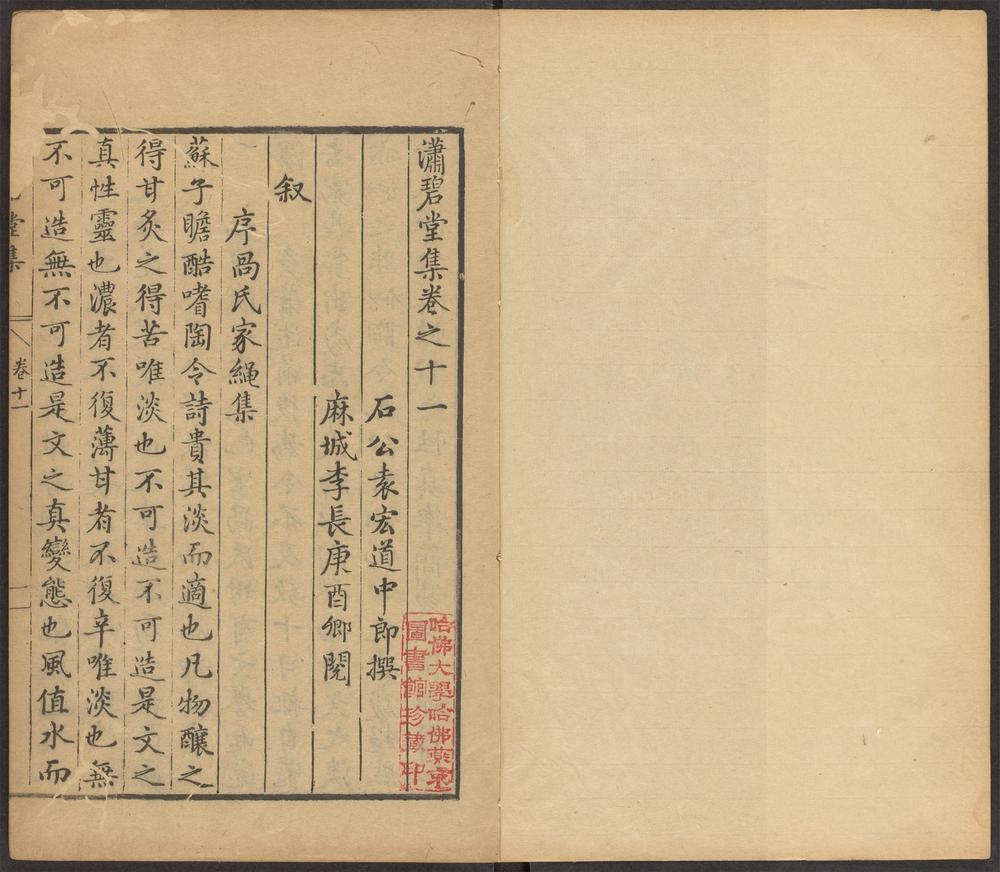 瀟碧堂集卷之十一
石公袁宏道中郎撰
麻城李長庚酉卿閱
叙
序咼氏家繩集
蘇子瞻酷嗜陶令詩貴其淡而適也凡物釀之
得甘炙之得苦唯淡也不可造不可造是文之
真性靈也濃者不復薄甘者不復辛唯淡也無
不可造無不可造是文之真變態也風值水而
堂集
卷十一
哈佛大學哈佛燕京
圖書館珍藏印